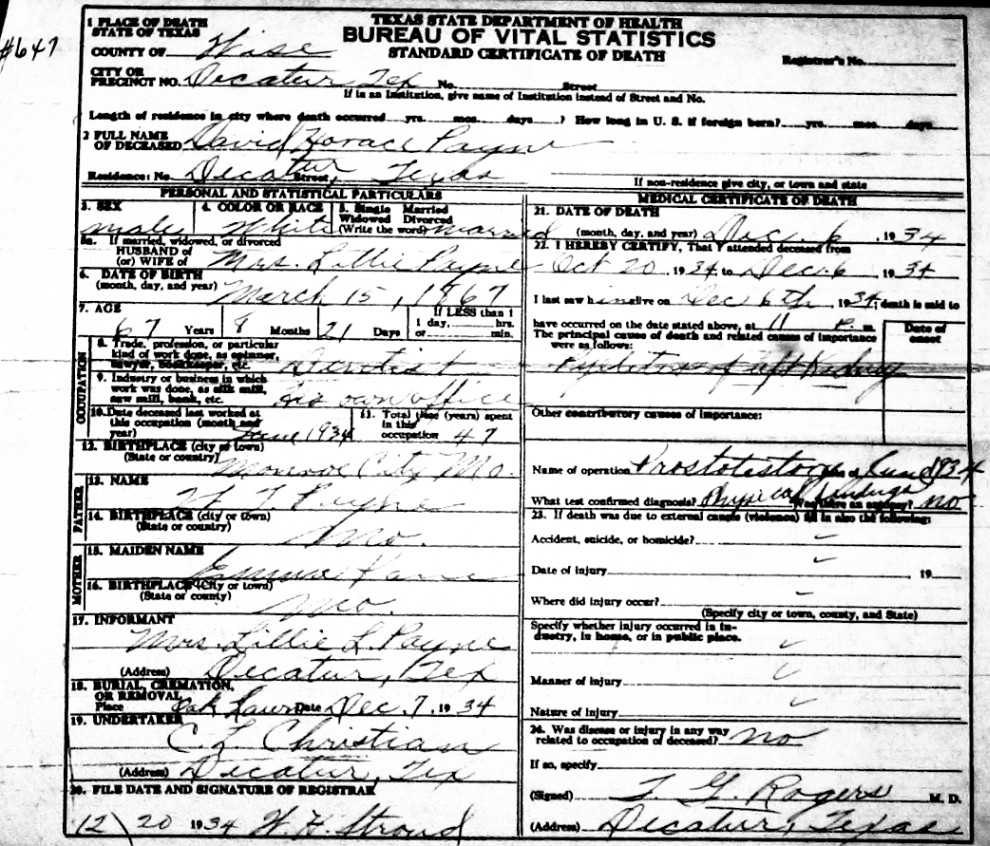 #647
TEXAS STATE DEPARTMENT OF HEALTH
BUREAU OF VITAL STATISTICS
STANDARD CERTIFICATE OF DEATH
1 PLACE OF DEATH
STATE OF TEXAS
COUNTY OF Wise
Registrar's No.
CITY OR
PRECINCT NO. Decatur, Tex No. Street
If in an Institution, give name of Institution instead of Street and No.
Length of residence in city where death occurred yrs. mos. days ? How long in U. S. if foreign born? yrs. mos. days
2 FULL NAME
OF DECEASED David Horace Payne
Residence: No. Street, Decatur, Texas
If non-residence give city, or town and state
PERSONAL AND STATISTICAL PARTICULARS
3. SEX
male
4. COLOR OR RACE
White
5. Single Married
Widowed Divorced
(Write the word) married
5a. If married, widowed, or divorced
HUSBAND of
(or) WIFE of Mrs. Lillie Payne
6. DATE OF BIRTH
(month, day, and year) March 15, 1867
7. AGE
67 Years 8 Months 21 Days
If LESS than 1
1 day, hrs.
or min.
OCCUPATION
8. Trade, profession, or particular
kind of work done, as spinner,
sawyer, bookkeeper, etc. Dentist
9. Industry or business in which
work was done, as silk mill,
saw mill, bank, etc. his own office
10. Date deceased last worked at
this occupation (month and
year) June 1934
11. Total time (years) spent
in this
occupation 47
12. BIRTHPLACE (city or town)
(State or country) Monroe City Mo.
FATHER
13. NAME
Payne
14. BIRTHPLACE (city or town)
(State or country)
Mo.
MOTHER
15. MAIDEN NAME
16. BIRTHPLACE (City or town)
(State or county)
Mo.
17. INFORMANT
Mrs Lillie L. Payne
(Address) Decatur, Tex
18. BURIAL, CREMATION,
OR REMOVAL
Place Oak Lawn Date Dec. 7, 1934
19. UNDERTAKER
C. L. Christian
(Address) Decatur, Tex
20. FILE DATE AND SIGNATURE OF REGISTRAR
12 \ 20 1934 W. H. Stroud
MEDICAL CERTIFICATE OF DEATH
21. DATE OF DEATH
(month, day, and year) Dec. 6, 1934
22. I HEREBY CERTIFY, That I attended deceased from
Oct 20, 1934 to Dec. 6, 1934
I last saw him alive on Dec 6th, 1934, death is said to
have occurred on the date stated above, at 11 P. m.
The principal cause of death and related causes of importance
were as follows:
Date of
onset
of left Kidney
Other contributory causes of importance:
Name of operation Date of June 1934
What test confirmed diagnosis? Physical findings Was there an autopsy? no
23. If death was due to external causes (violence) fill in also the following:
Accident, suicide, or homicide?
Date of injury , 19
Where did injury occur?
(Specify city or town, county, and State)
Specify whether injury occurred in in-
dustry, in home, or in public place.
Manner of injury
Nature of injury
24. Was disease or injury in any way
related to occupation of deceased? no
If so, specify
(Signed) T. G. Rogers M. D.
(Address) Decatur, Texas